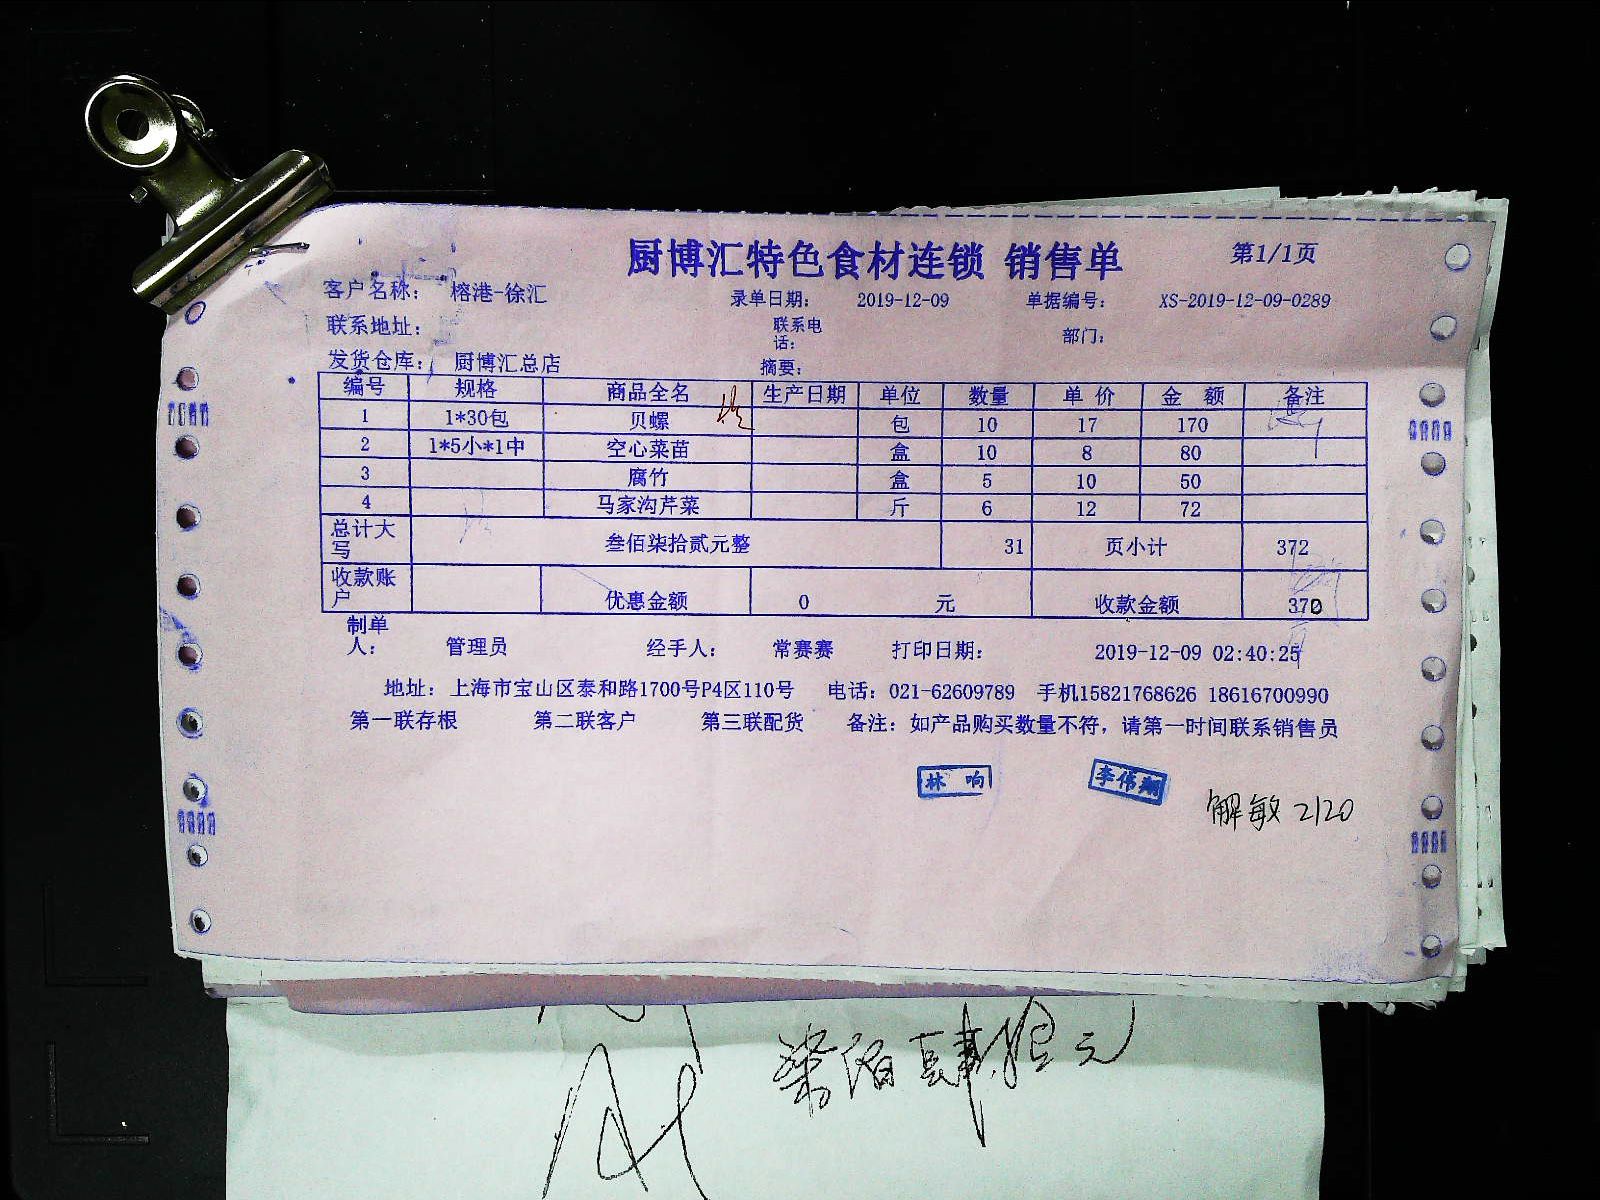 厨博汇特色食材连锁 销售单 第1/1页
客户名称: 榕港-徐汇 录单日期: 2019-12-09 单据编号: XS-2019-12-09-0289
联系地址: 联系电话: 部门:
发货仓库: 厨博汇总店 摘要:
编号 规格 商品全名 生产日期 单位 数量 单 价 金 额 备注
1 1*30包 贝螺 包 10 17 170
2 1*5小*1中 空心菜苗 盒 10 8 80
3 腐竹 盒 5 10 50
4 马家沟芹菜 斤 6 12 72
总计大写 叁佰柒拾贰元整 31 页小计 372
收款账户 优惠金额 0 元 收款金额 370
制单人: 管理员 经手人: 常赛赛 打印日期: 2019-12-09 02:40:25
地址: 上海市宝山区泰和路1700号P4区110号 电话: 021-62609789 手机15821768626 18616700990
第一联存根 第二联客户 第三联配货 备注: 如产品购买数量不符, 请第一时间联系销售员
林 响 李伟翔
解敏 2/20
柒佰肆拾元